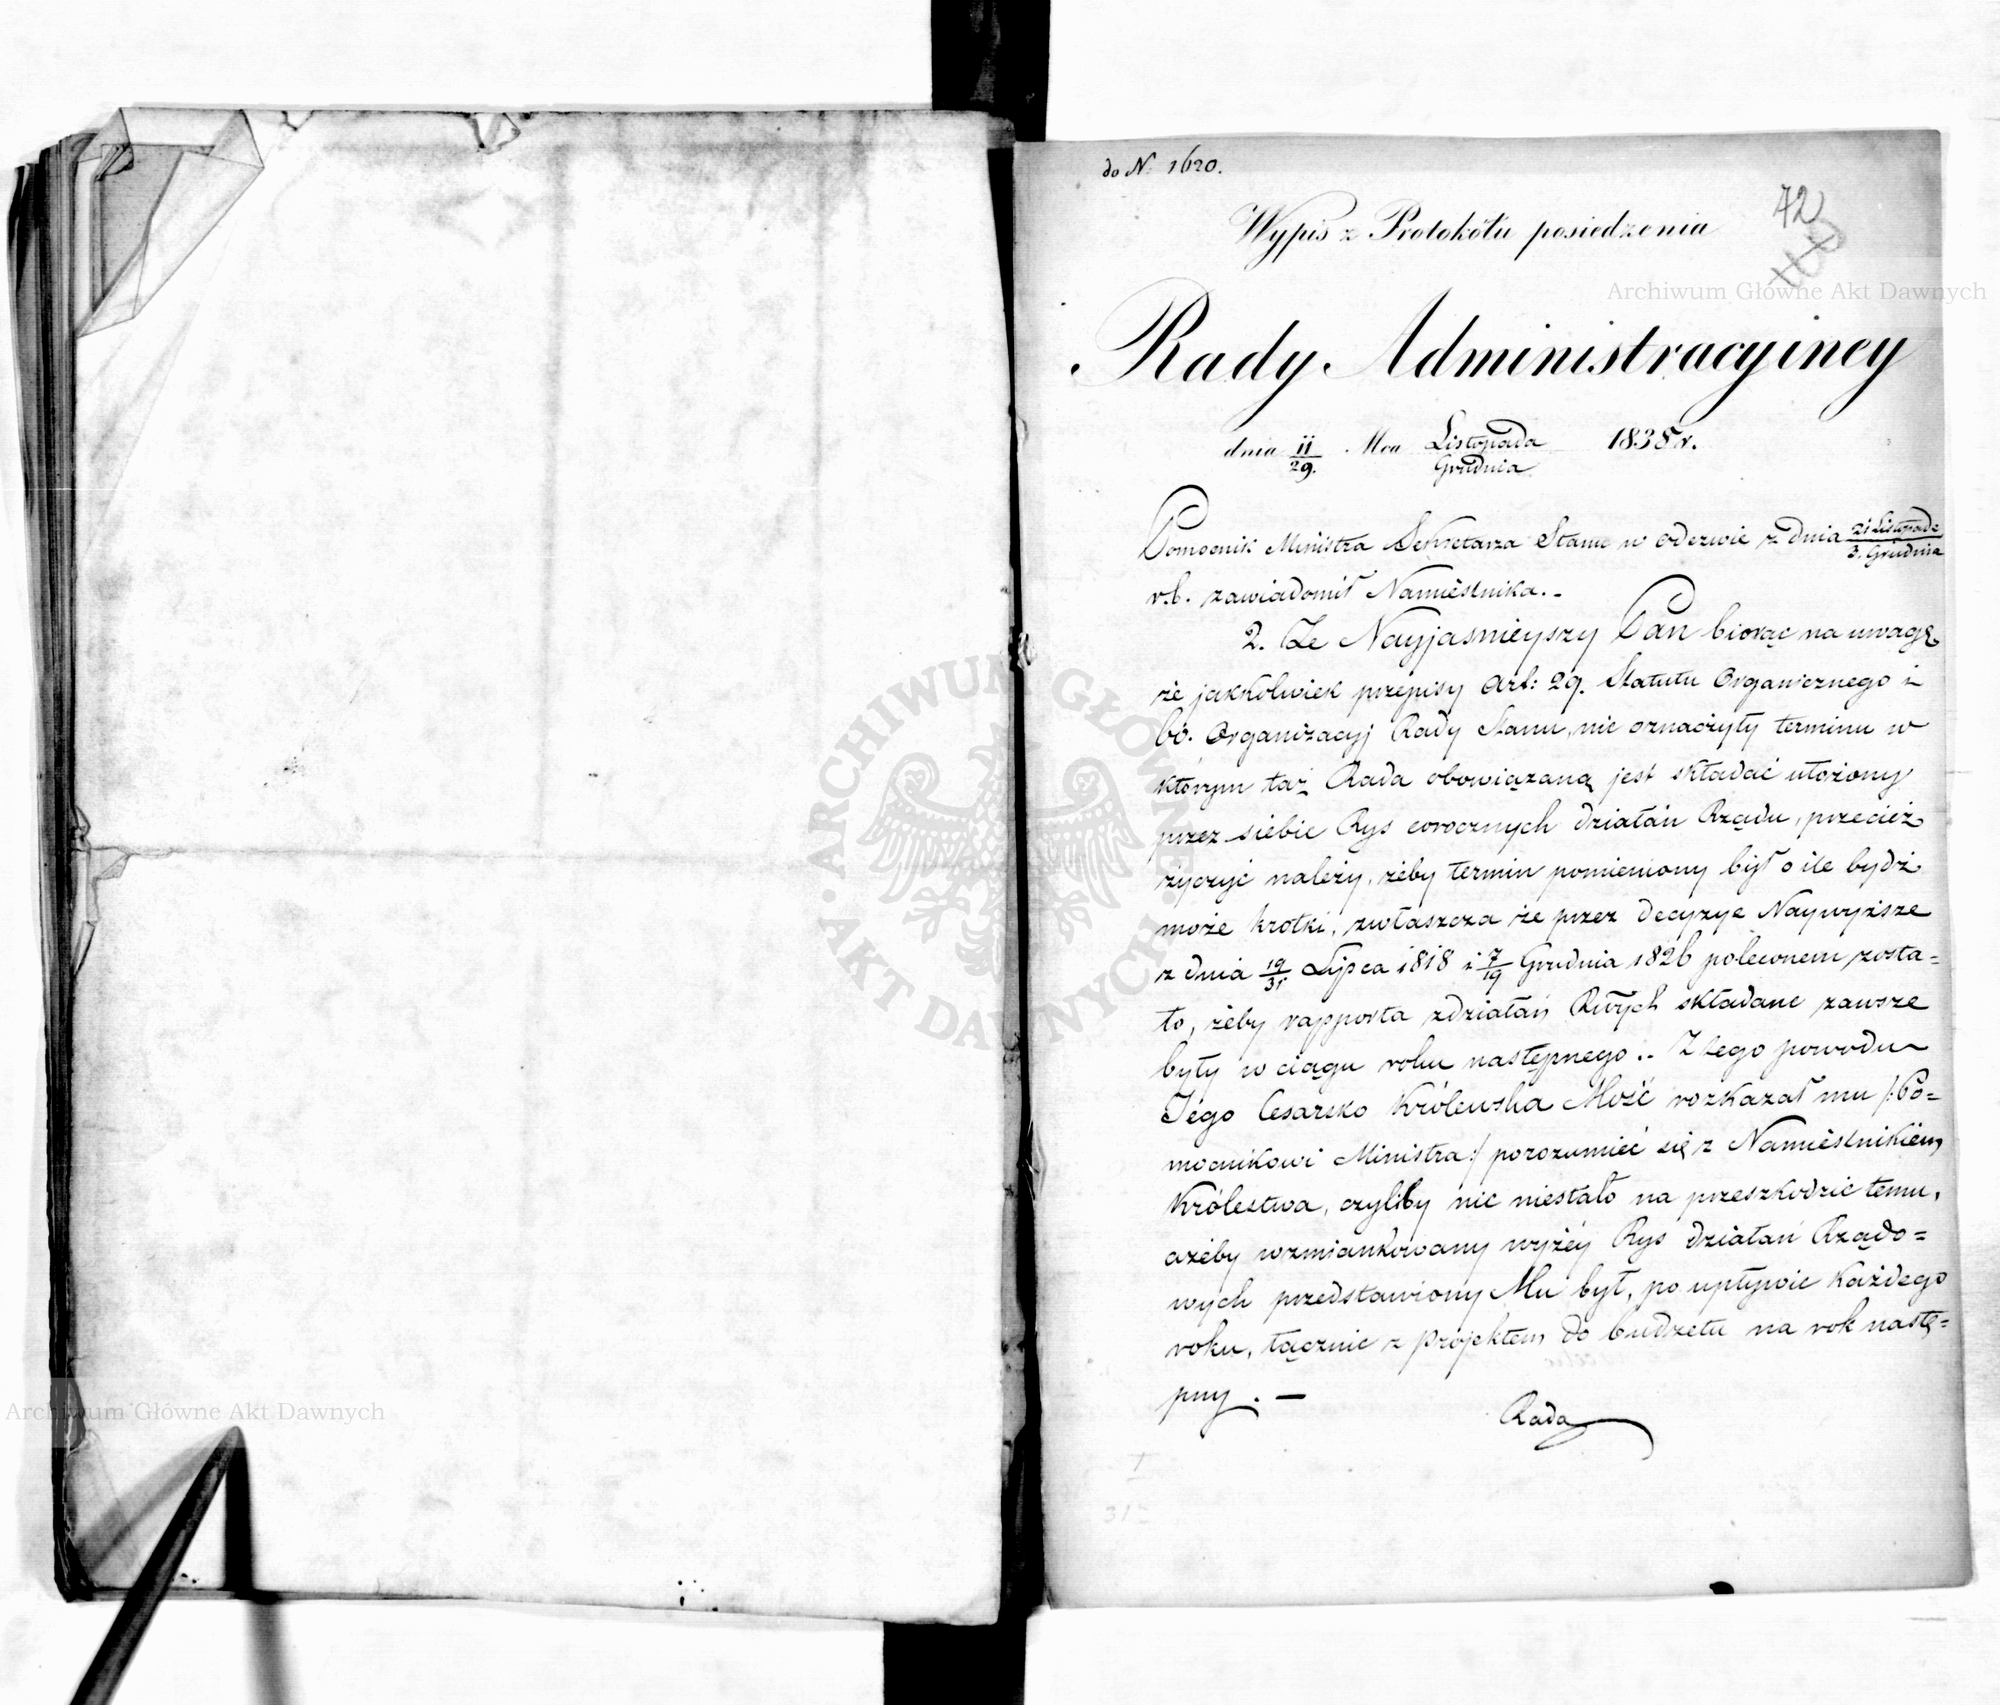 do N: 1620.
42
Wypis z Protokółu posiedzenia
Rady Administracyiney
dnia 11/29. Mca Listopada/Grudnia 1835 r.
Pomocnik Ministra Sekretarza Stanu w odezwie z dnia 21 Listopada/3. Grudnia
r.b. zawiadomił Namiestnika.-
2. Że Nayjaśnieyszy Pan biorąc na uwagę
że jakkolwiek przepisy Art: 29. Statutu Organicznego i
60. Organizacyj Rady Stanu, nie oznaczyły terminu w
którym taż Rada obowiązaną jest składać ułożony
przez siebie Rys corocznych działań Rządu, przecież
życzyć należy, żeby termin pomieniony był o ile bydź
może krotki, zwłaszcza że przez decyzye Naywyższe
z dnia 19/31 Lipca 1818 i 7/19 Grudnia 1826 poleconem zosta=
ło, żeby rapporta z działań składane zawsze
były w ciągu roku następnego.. Z tego powodu
Jego Cesarsko Królewska Mość rozkazał mu /:Po=
mocnikowi Ministra:/ porozumieć się z Namiestnikiem
Królestwa, czyliby nic niestało na przeszkodzie temu,
ażeby wzmiankowany wyżéy Rys działań Rządo=
wych przedstawiony Mu był, po upływie każdego
roku, łącznie z projektem do budżetu na rok nastę=
pny. —
Rada
Archiwum Główne Akt Dawnych
Archiwum Główne Akt Dawnych
ARCHIWUM GŁÓWNE AKT DAWNYCH